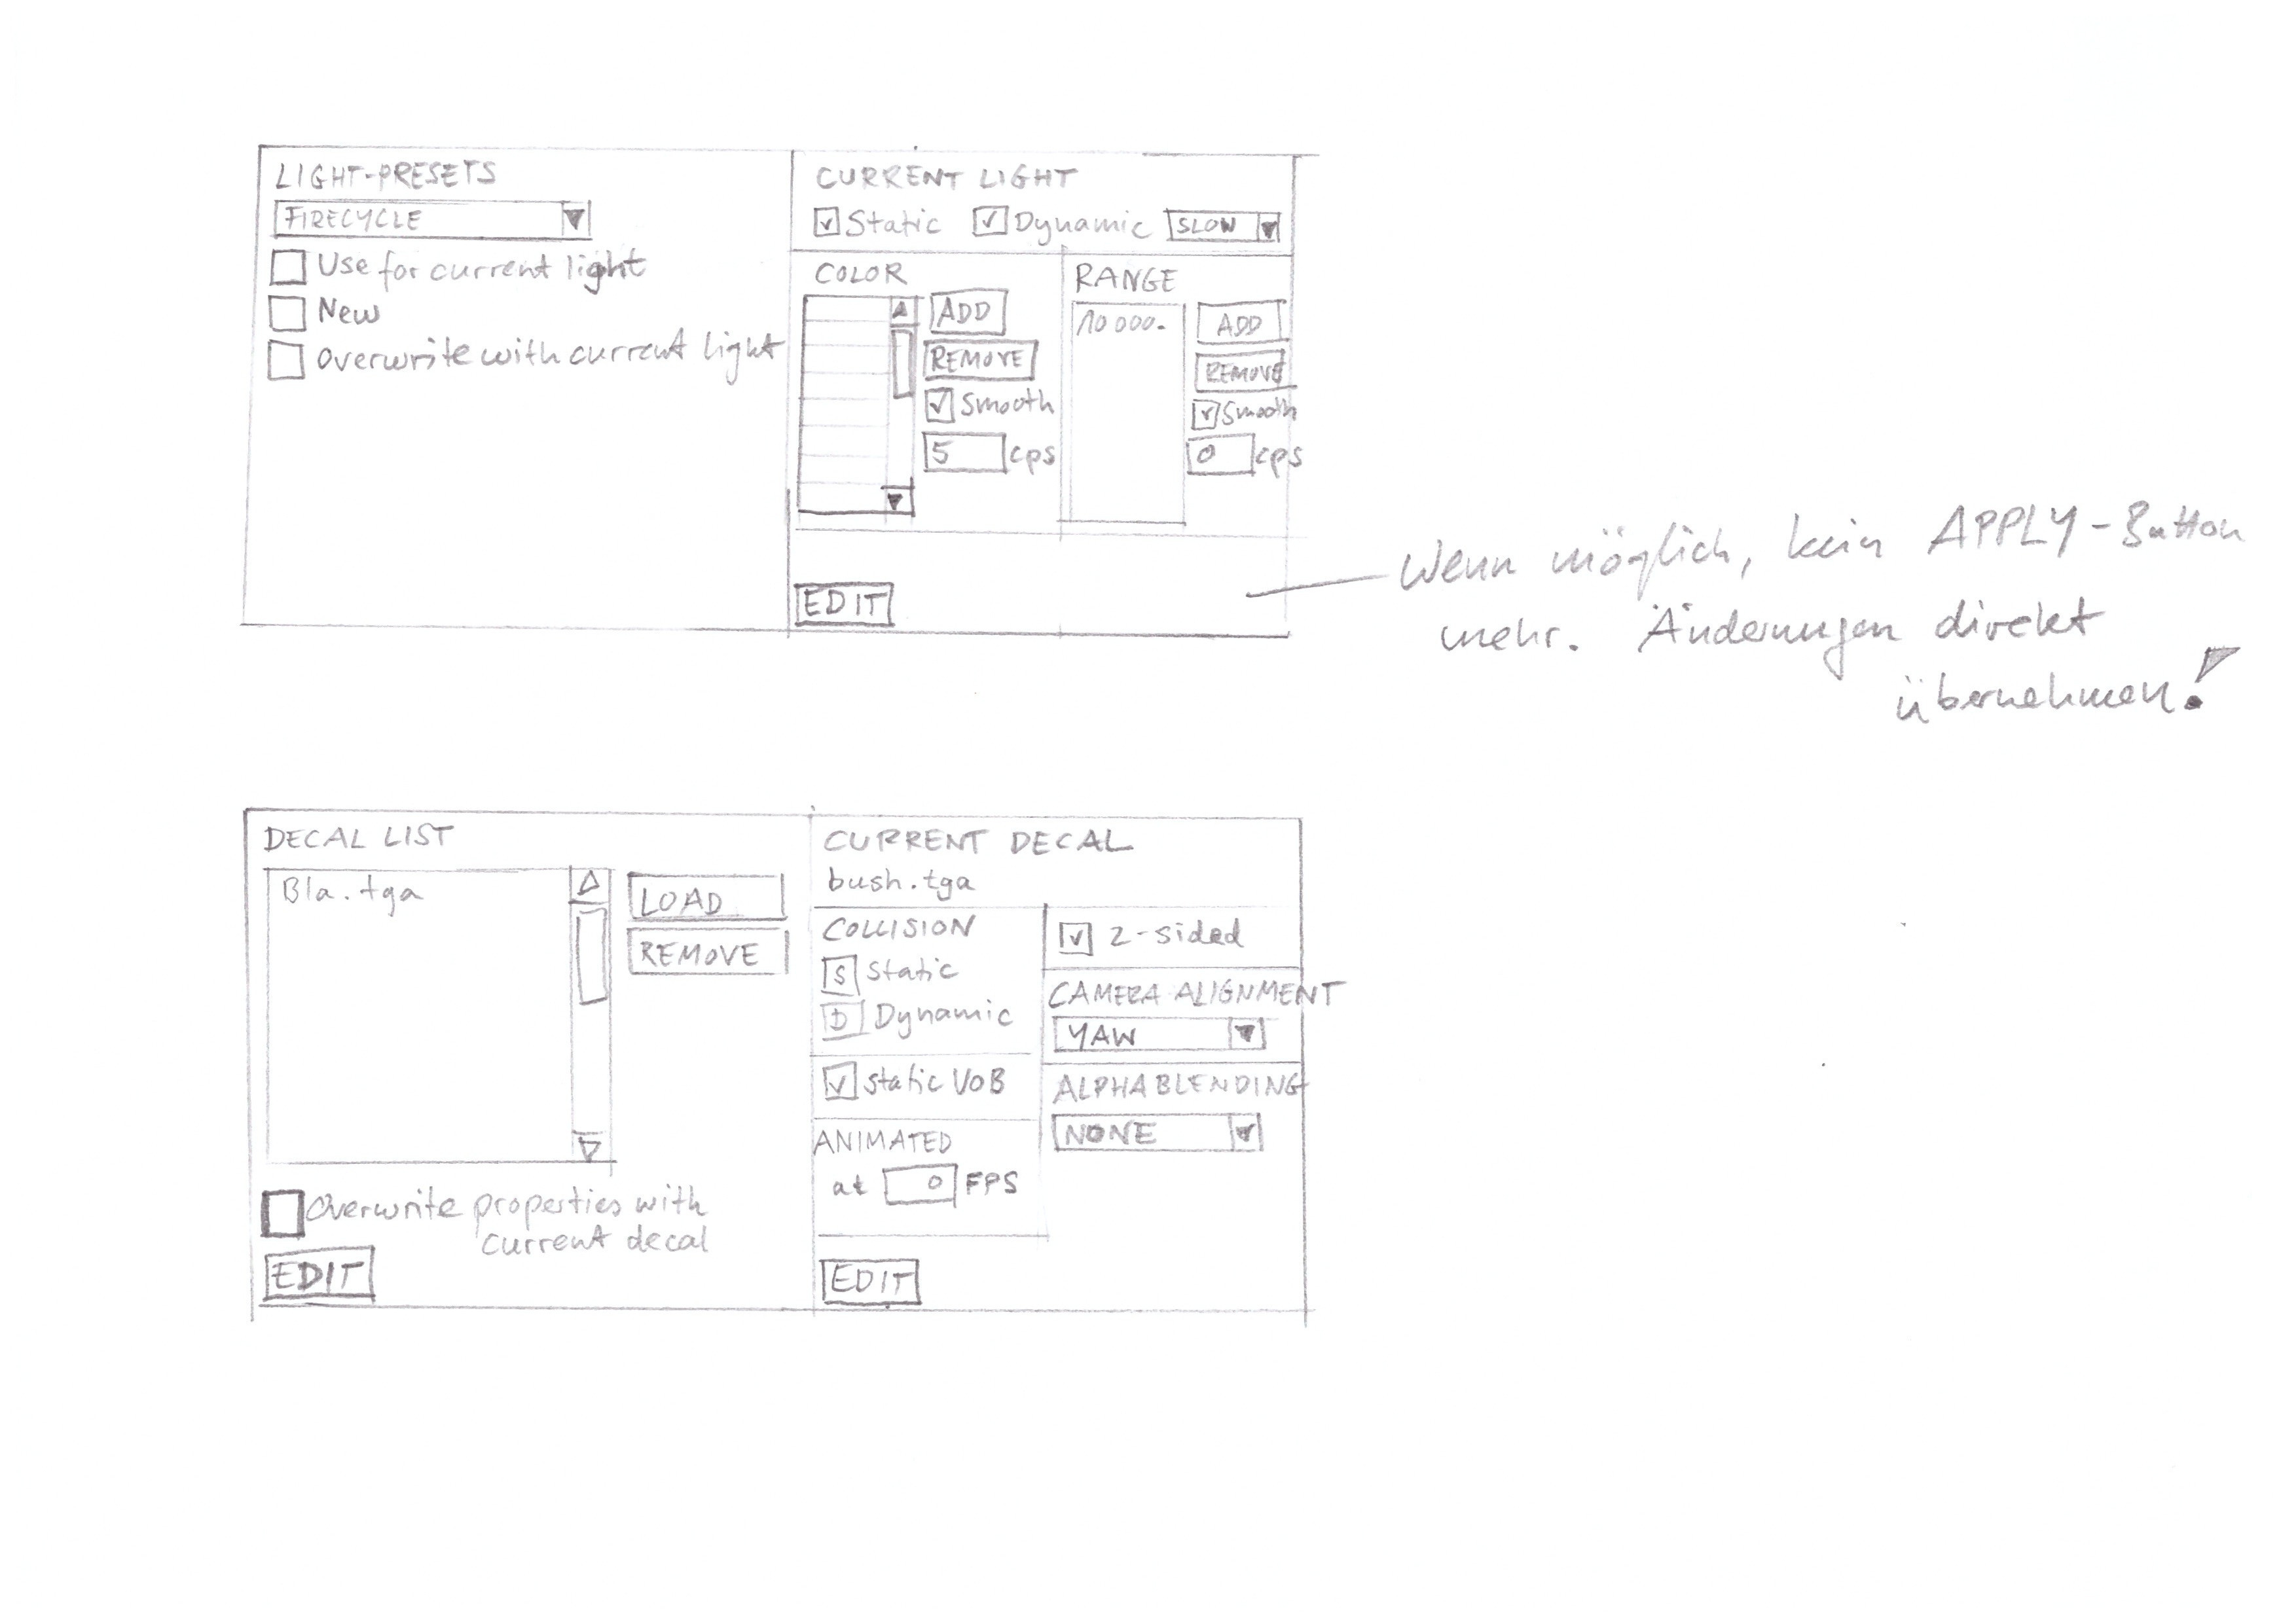 LIGHT-PRESETS
FIRECYCLE
Use for current light
New
Overwrite with current light
CURRENT LIGHT
Static Dynamic SLOW
COLOR
ADD
REMOVE
Smooth
5 cps
RANGE
10 000.
ADD
REMOVE
Smooth
0 cps
EDIT
Wenn möglich, kein APPLY-Button
mehr. Änderungen direkt
übernehmen!
DECAL LIST
Bla.tga
LOAD
REMOVE
Overwrite properties with
current decal
EDIT
CURRENT DECAL
bush.tga
COLLISION
S Static
D Dynamic
static VOB
ANIMATED
at 0 FPS
2-sided
CAMERA ALIGNMENT
YAW
ALPHABLENDING
NONE
EDIT